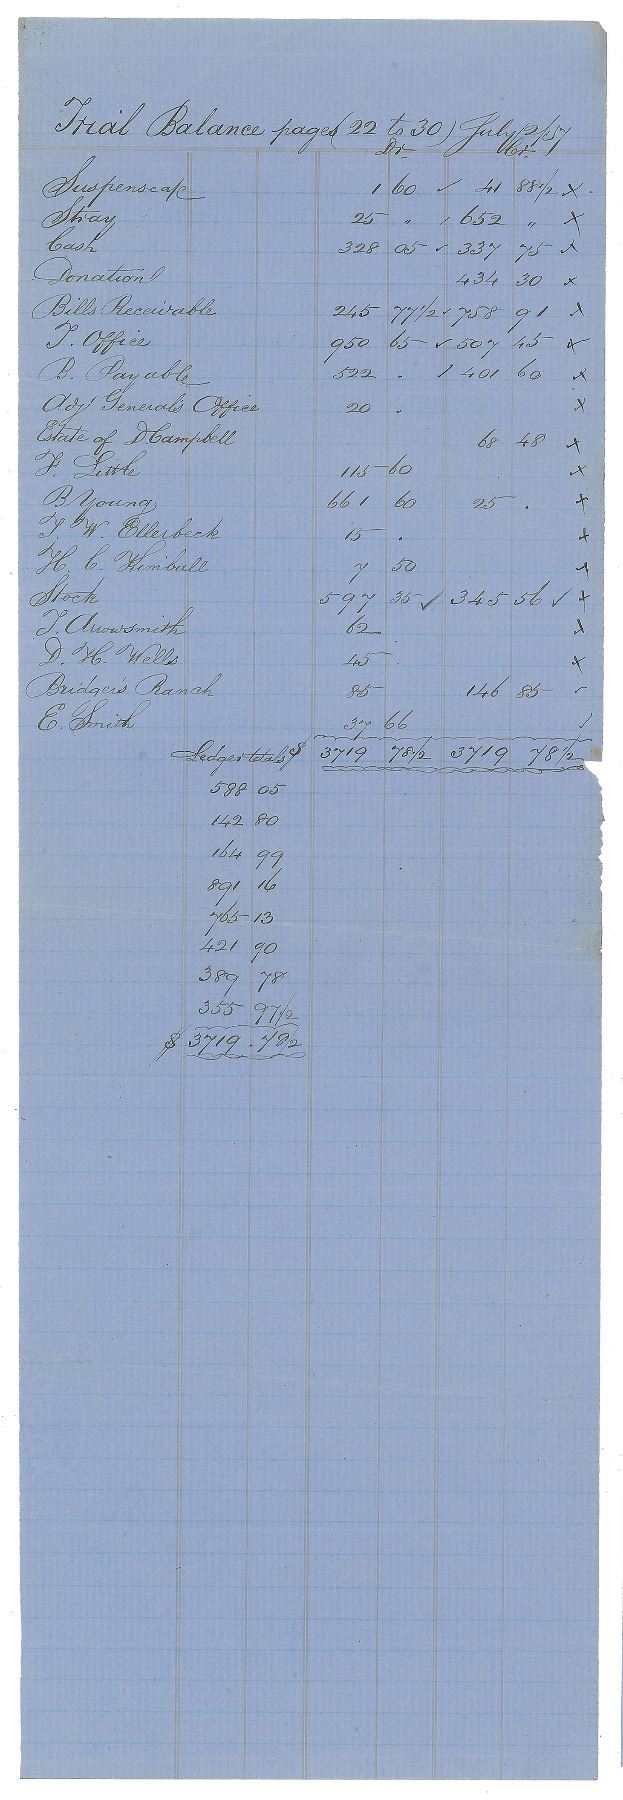 Trial Balance pages (22 to 30) July 12/57
Dr. Cr.
Suspense a/c 1 60 ✓ 41 88 1/2 x
Stray 25 " / 652 " x
Cash 328 05 ✓ 337 75 x
Donation 434 30 x
Bills Receivable 245 77 1/2 ✓ 758 91 x
T. Office 950 65 ✓ 507 45 x
B. Payable 522 . / 401 60 x
Adj Generals Office 20 . x
Estate of D Campbell 68 48 x
F. Little 115 60 x
B Young 661 60 25 . x
T. W. Ellerbeck 15 . x
H. C. Kimball 7 50 x
Stock 597 35 ✓ 345 56 ✓ x
J. Arrowsmith 62 x
D. H. Wells 45 . x
Bridger's Ranch 85 146 85 ✓
E. Smith 37 66 /
Ledger totals $ 3719 78 1/2 3719 78 1/2
588 05
142 80
164 99
891 16
765 13
421 90
389 78
355 97 1/2
$ 3719 . 78 1/2